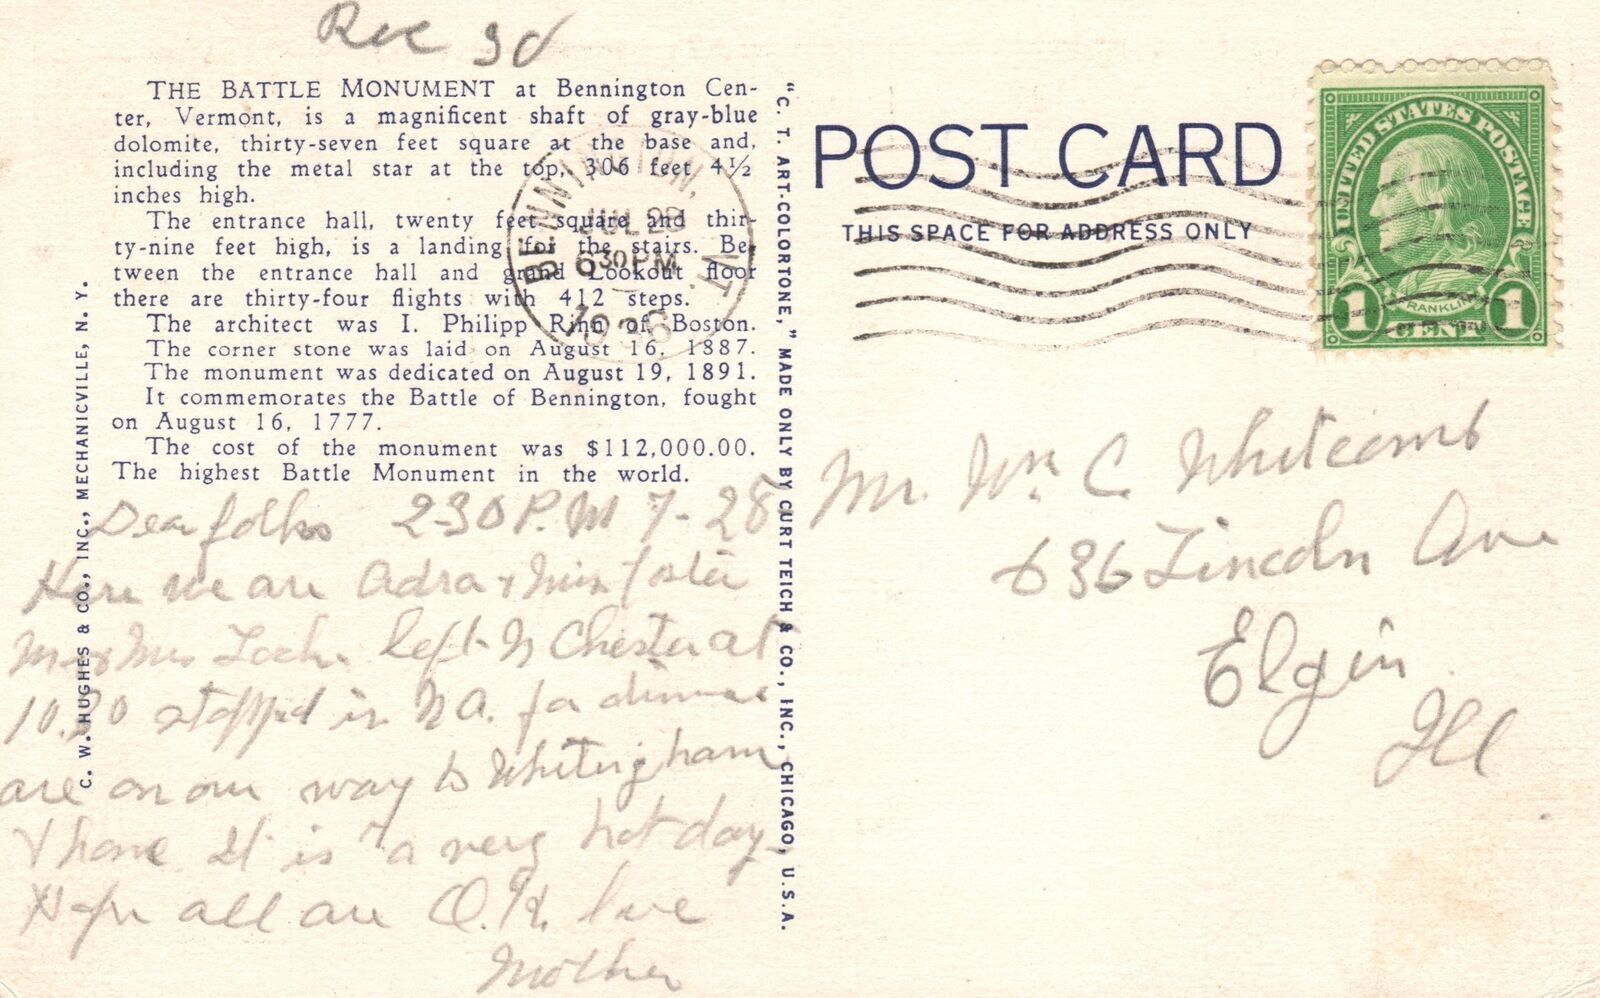 Rec 30
THE BATTLE MONUMENT at Bennington Cen-
ter, Vermont, is a magnificent shaft of gray-blue
dolomite, thirty-seven feet square at the base and,
including the metal star at the top, 306 feet 4½
inches high.
The entrance hall, twenty feet square and thir-
ty-nine feet high, is a landing for the stairs. Be-
tween the entrance hall and grand Lookout floor
there are thirty-four flights with 412 steps.
The architect was I. Philipp Rinn of Boston.
The corner stone was laid on August 16, 1887.
The monument was dedicated on August 19, 1891.
It commemorates the Battle of Bennington, fought
on August 16, 1777.
The cost of the monument was $112,000.00.
The highest Battle Monument in the world.
Dear folks 2-30 P.M 7-28
Here we are Adra & Foster
Mr & Mrs left N Chester at
10.30 stopped in N A. for dinner
are on our way to Whitingham
& home It is a very hot day-
Hope all are O.K. love
Mother
C. W. HUGHES & CO., INC., MECHANICVILLE, N. Y.
"C. T. ART-COLORTONE," MADE ONLY BY CURT TEICH & CO., INC., CHICAGO, U.S.A.
BENNINGTON, VT.
JUL 28
6 30 PM
1936
POST CARD
THIS SPACE FOR ADDRESS ONLY
UNITED STATES POSTAGE
FRANKLIN
1 CENT 1
Mr. Wm C. Whitcomb
636 Lincoln Ave
Elgin
Ill